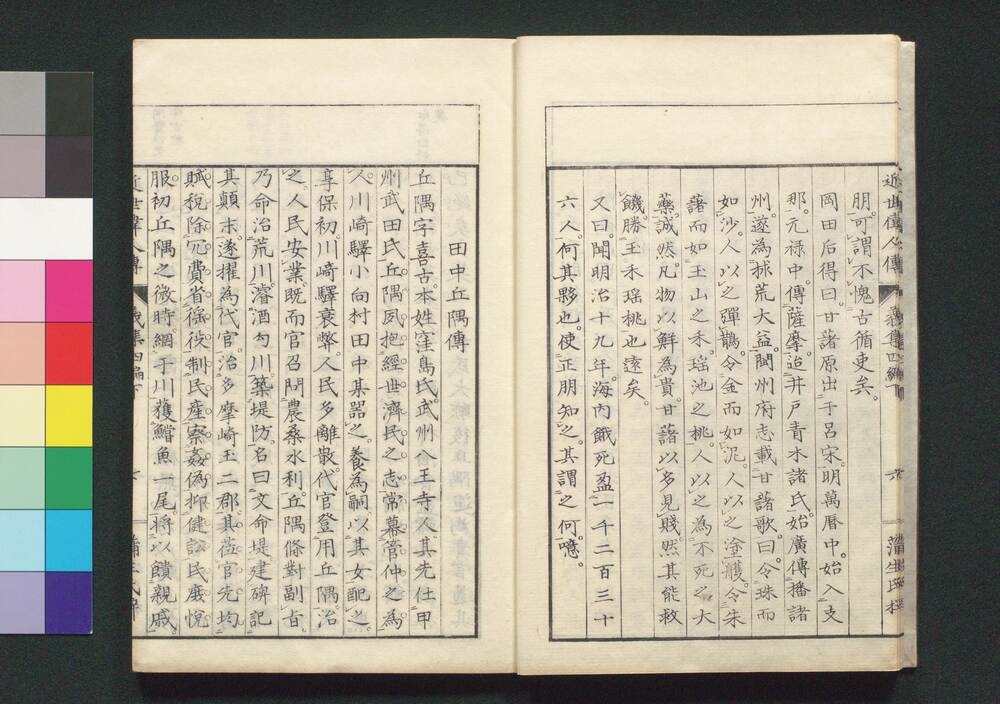 近世偉人傳 義集四編 六 蒲生氏梓
朋。可謂不愧古循吏矣。
岡田后得曰。甘藷原出于呂宋。明萬曆中。始入支
那。元禄中。傳薩摩。迨井戸青木諸氏。始廣傳播諸
州。遂為拯荒大益。閩州府志載甘藷歌曰。令珠而
如沙。人以之彈鵲。令金而如泥。人以之塗雘。令朱
藷而如玉山之禾。瑶池之桃。人以之為不死之大
藥。誠然。凡物以鮮為貴。甘藷以多見賤。然其能救
饑。勝玉禾瑶桃也遠矣。
又曰。聞明治十九年。海内餓死盈一千二百三十
六人。何其夥也。使正朋知之。其謂之何。噫。
田中丘隅傳
丘隅字喜古。本姓窪島氏。武州八王寺人。其先仕甲
州武田氏。丘隅夙抱經世濟民之志。常慕管仲之為
人。川崎驛小向村田中某器之。養為嗣。以其女配之。
享保初。川崎驛衰弊。人民多離散。代官登用丘隅。治
之。人民安業。既而官召問農桑水利。丘隅條對副旨。
乃命治荒川。濬酒匂川。築堤防。名曰文命堤。建碑記
其顛末。遂擢為代官。治多摩崎玉二郡。其莅官先均
賦税。除冗費。省徭役。制民產。察姦偽。抑健訟。民底悦
服。初丘隅之微時。網于川。獲鱣魚一尾。將以饋親戚。
近世偉人傳 義集四編下 七 蒲生氏梓